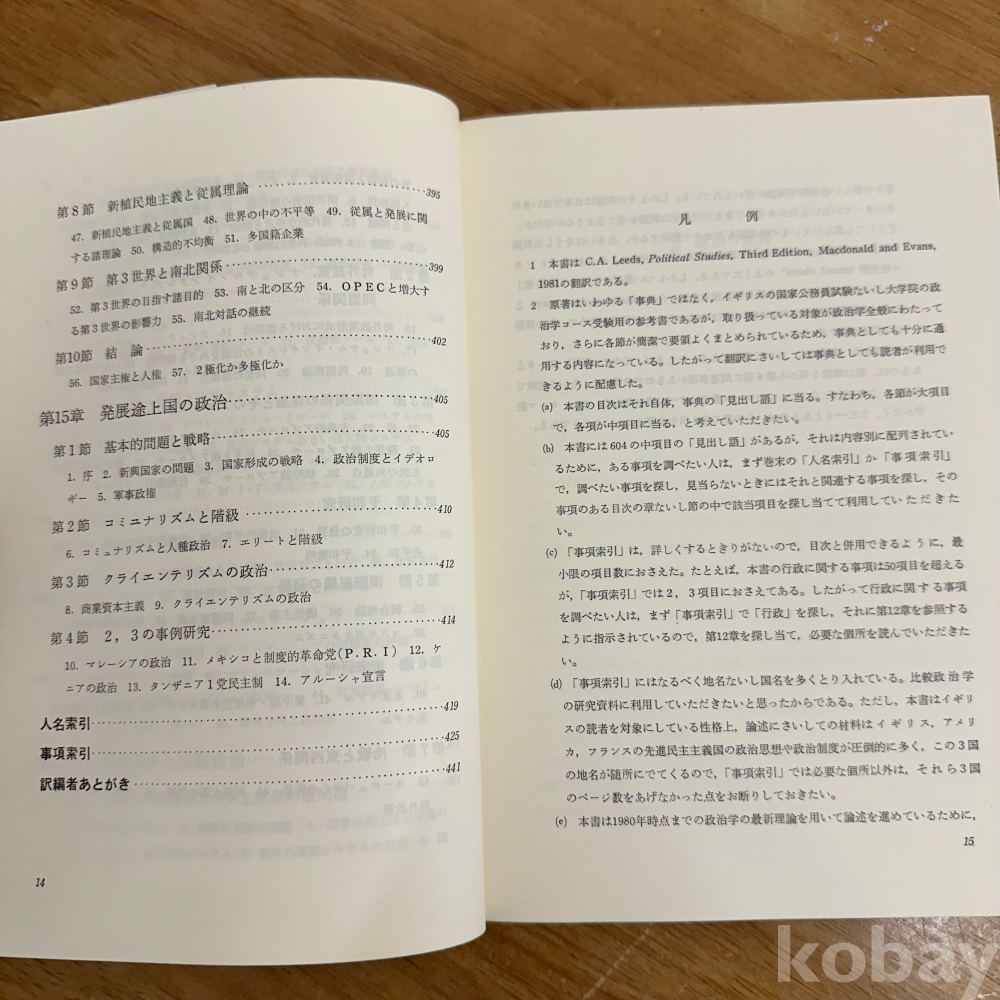 第8節　新植民地主義と従属理論 ……………………395
47. 新植民地主義と従属国　48. 世界の中の不平等　49. 従属と発展に関
する諸理論　50. 構造的不均衡　51. 多国籍企業
第9節　第3世界と南北関係 ……………………399
52. 第3世界の目指す諸目的　53. 南と北の区分　54. OPECと増大す
る第3世界の影響力　55. 南北対話の継続
第10節　結　論 ……………………402
56. 国家主権と人権　57. 2極化か多極化か
第15章　発展途上国の政治 ……………………405
第1節　基本的問題と戦略 ……………………405
1. 序　2. 新興国家の問題　3. 国家形成の戦略　4. 政治制度とイデオロ
ギー　5. 軍事政権
第2節　コミュナリズムと階級 ……………………410
6. コミュナリズムと人種政治　7. エリートと階級
第3節　クライエンテリズムの政治 ……………………412
8. 商業資本主義　9. クライエンテリズムの政治
第4節　2，3の事例研究 ……………………414
10. マレーシアの政治　11. メキシコと制度的革命党(P.R.I)　12. ケ
ニアの政治　13. タンザニア1党民主制　14. アルーシャ宣言
人名索引 ……………………419
事項索引 ……………………425
訳編者あとがき ……………………441
14
凡　例
1　本書は C.A. Leeds, Political Studies, Third Edition, Macdonald and Evans,
1981の翻訳である。
2．原著はいわゆる「事典」ではなく，イギリスの国家公務員試験ないし大学院の政
治学コース受験用の参考書であるが，取り扱っている対象が政治学全般にわたって
おり，さらに各節が簡潔で要領よくまとめられているため，事典としても十分に通
用する内容になっている。したがって翻訳にさいしては事典としても読者が利用で
きるように配慮した。
(a)　本書の目次はそれ自体，事典の「見出し語」に当る。すなわち，各節が大項目
で，各項が中項目に当る，と考えていただきたい。
(b)　本書には604の中項目の「見出し語」があるが，それは内容別に配列されてい
るために，ある事項を調べたい人は，まず巻末の「人名索引」か「事項索引」
で，調べたい事項を探し，見当らないときにはそれと関連する事項を探し，その
事項のある目次の章ないし節の中で該当項目を探し当てて利用していただきた
い。
(c)　「事項索引」は，詳しくするときりがないので，目次と併用できるように，最
小限の項目数におさえた。たとえば，本書の行政に関する事項は50項目を超える
が，「事項索引」では2，3項目におさえてある。したがって行政に関する事項
を調べたい人は，まず「事項索引」で「行政」を探し，それに第12章を参照する
ように指示されているので，第12章を探し当て，必要な個所を読んでいただきた
い。
(d)　「事項索引」にはなるべく地名ないし国名を多くとり入れている。比較政治学
の研究資料に利用していただきたいと思ったからである。ただし，本書はイギリ
スの読者を対象にしている性格上，論述にさいしての材料はイギリス，アメリ
カ，フランスの先進民主主義国の政治思想や政治制度が圧倒的に多く，この3国
の地名が随所にでてくるので，「事項索引」では必要な個所以外は，それら3国
のページ数をあげなかった点をお断りしておきたい。
(e)　本書は1980年時点までの政治学の最新理論を用いて論述を進めているために，
15
kobay